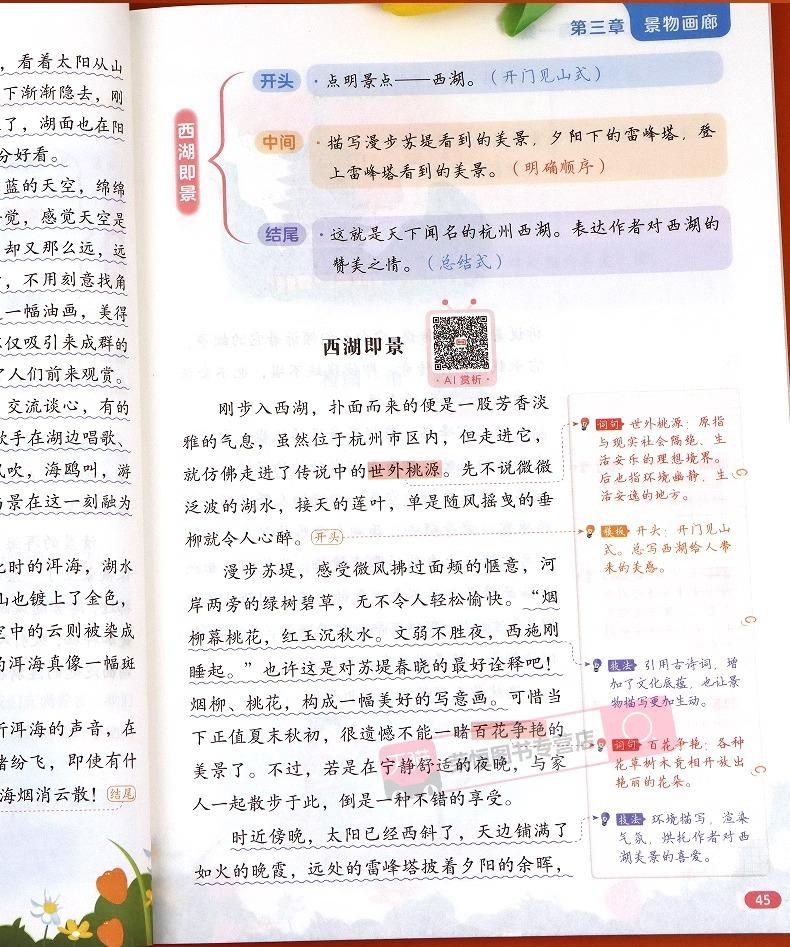 ，看着太阳从山
下渐渐隐去，刚
了，湖面也在阳
分好看。
蓝的天空，绵绵
觉，感觉天空是
却又那么远，远
，不用刻意找角
一幅油画，美得
仅吸引来成群的
了人们前来观赏。
交流谈心，有的
手在湖边唱歌、
风吹，海鸥叫，游
景在这一刻融为
此时的洱海，湖水
山也镀上了金色，
空中的云则被染成
的洱海真像一幅斑
听洱海的声音，在
绪纷飞，即使有什
海烟消云散！ 结尾
第三章 景物画廊
西湖即景
开头 ·点明景点——西湖。（开门见山式）
中间 ·描写漫步苏堤看到的美景，夕阳下的雷峰塔，登
上雷峰塔看到的美景。（明确顺序）
结尾 ·这就是天下闻名的杭州西湖。表达作者对西湖的
赞美之情。（总结式）
西湖即景
·AI赏析·
刚步入西湖，扑面而来的便是一股芳香淡
雅的气息，虽然位于杭州市区内，但走进它，
就仿佛走进了传说中的世外桃源。先不说微微
泛波的湖水，接天的莲叶，单是随风摇曳的垂
柳就令人心醉。 开头
漫步苏堤，感受微风拂过面颊的惬意，河
岸两旁的绿树碧草，无不令人轻松愉快。“烟
柳幕桃花，红玉沉秋水。文弱不胜夜，西施刚
睡起。”也许这是对苏堤春晓的最好诠释吧！
烟柳、桃花，构成一幅美好的写意画。可惜当
下正值夏末秋初，很遗憾不能一睹百花争艳的
美景了。不过，若是在宁静舒适的夜晚，与家
人一起散步于此，倒是一种不错的享受。
时近傍晚，太阳已经西斜了，天边铺满了
如火的晚霞，远处的雷峰塔披着夕阳的余晖，
词句 世外桃源：原指
与现实社会隔绝、生
活安乐的理想境界。
后也指环境幽静，生
活安逸的地方。
模板 开头：开门见山
式。总写西湖给人带
来的美感。
技法 引用古诗词，增
加了文化底蕴，也让景
物描写更加生动。
词句 百花争艳：各种
花草树木竞相开放出
艳丽的花朵。
技法 环境描写，渲染
气氛，烘托作者对西
湖美景的喜爱。
图书专营店
45